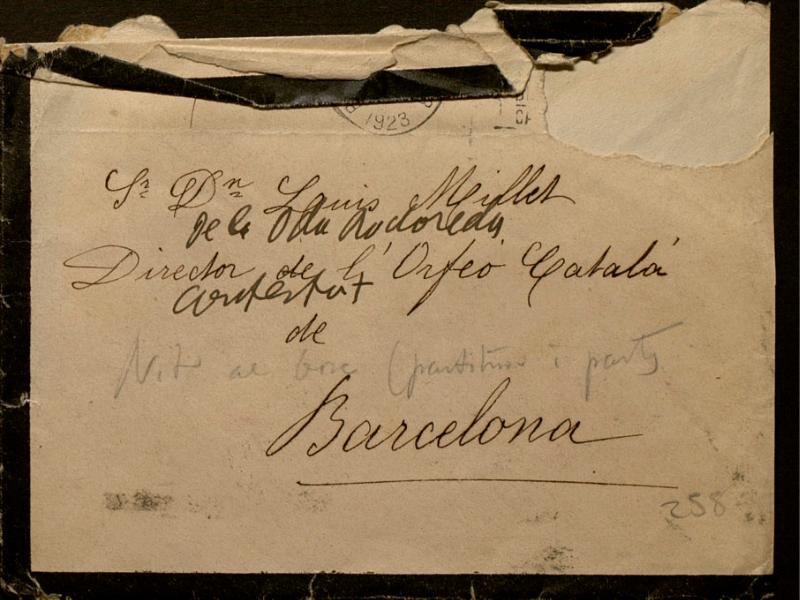 1923
Sr Dn Louis Millet
De la Vda Rodoreda
Director de l'Orfeó Catalá
contestat
de
Nit de (partitura i parts
Barcelona
258